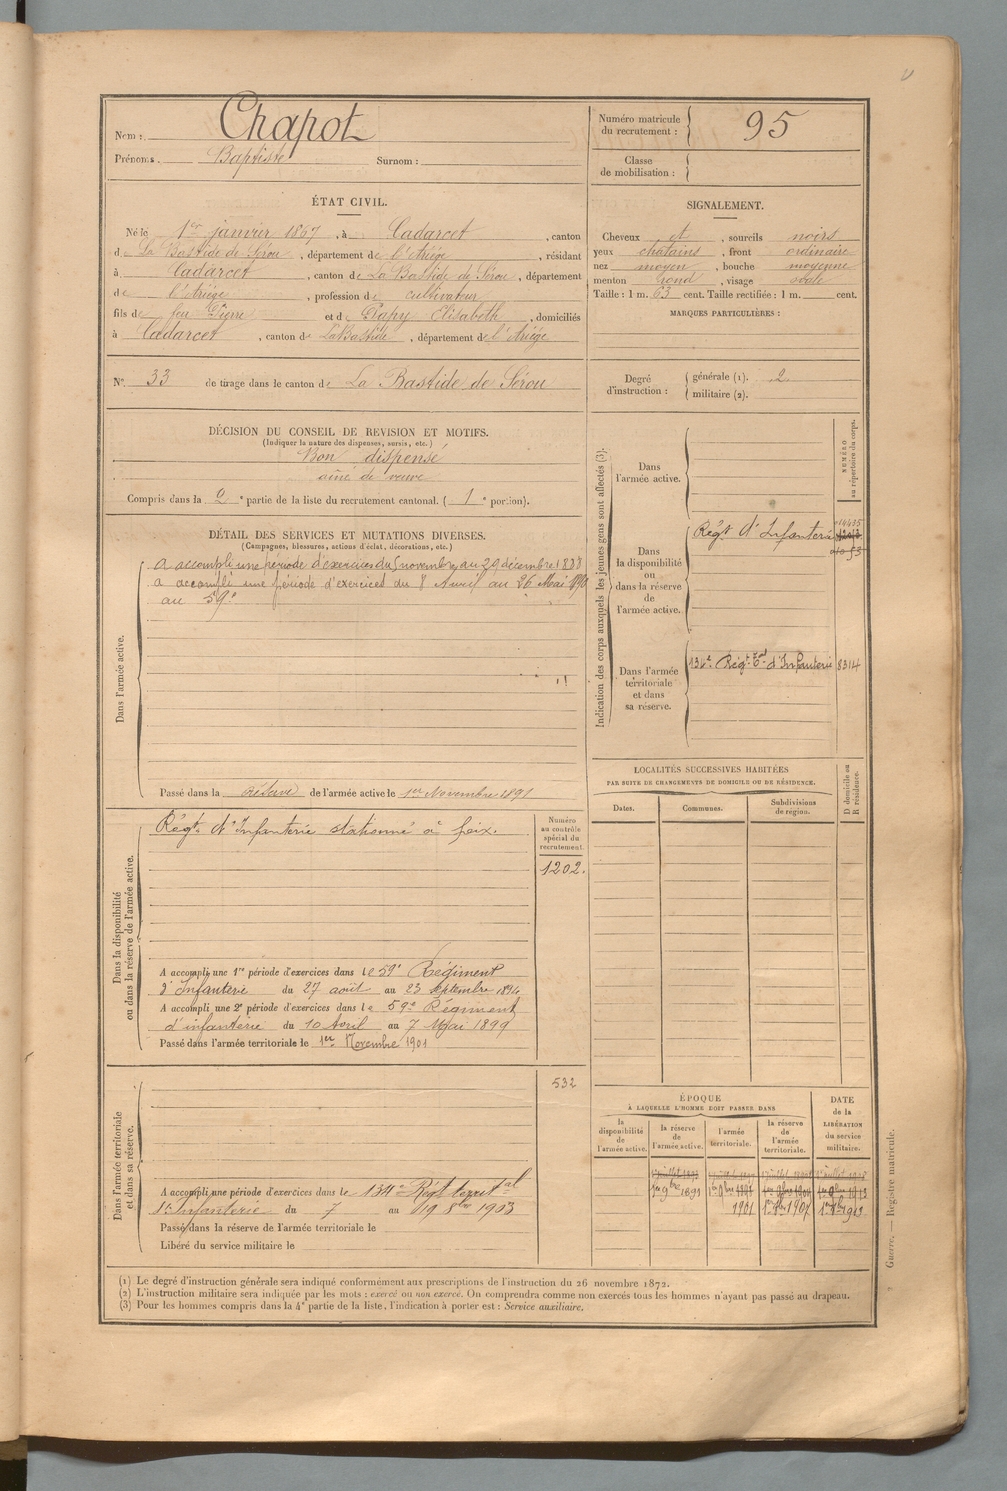 Nom : Chapot
Prénoms. Baptiste Surnom :
Numéro matricule du recrutement : 95
Classe de mobilisation :
ÉTAT CIVIL.
Né le 1er janvier 1867, à Cadarcet, canton
d La Bastide de Sérou, département de l'Ariége, résidant
à Cadarcet, canton de La Bastide de Sérou, département
de l'Ariége, profession de cultivateur
fils de feu Pierre et de Papy Elisabeth, domiciliés
à Cadarcet, canton de LaBastide, département de l'Ariége
No. 33 de tirage dans le canton de La Bastide de Sérou
SIGNALEMENT.
Cheveux et, sourcils noirs
yeux chatains, front ordinaire
nez moyen, bouche moyenne
menton rond, visage ovale
Taille : 1 m. 63 cent. Taille rectifiée : 1 m. cent.
MARQUES PARTICULIÈRES :
Degré d'instruction : générale (1). 2
militaire (2).
DÉCISION DU CONSEIL DE REVISION ET MOTIFS.
(Indiquer la nature des dispenses, sursis, etc.)
Bon dispensé
ainé de veuve
Compris dans la 2e partie de la liste du recrutement cantonal. (1e portion).
DÉTAIL DES SERVICES ET MUTATIONS DIVERSES.
(Campagnes, blessures, actions d'éclat, décorations, etc.)
Dans l'armée active.
a accompli une période d'exercices du 5 novembre au 29 décembre 1888
a accompli une période d'exercices du 8 Avril au 26 Mai 1890
au 59e
Passé dans la réserve de l'armée active le 1er Novembre 1891
Indication des corps auxquels les jeunes gens sont affectés (3).
NUMÉRO au répertoire du corps.
Dans l'armée active.
Dans la disponibilité ou dans la réserve de l'armée active.
Régt d'Infanterie
Dans l'armée territoriale et dans sa réserve.
134e Régt Tal d'Infanterie 8314
Dans la disponibilité ou dans la réserve de l'armée active.
Régt d'Infanterie stationné à foix.
Numéro au contrôle spécial du recrutement.
1202.
A accompli une 1re période d'exercices dans le 59e Régiment
d'Infanterie du 27 août au 23 septembre 1894
A accompli une 2e période d'exercices dans le 59e Régiment
d'infanterie du 10 Avril au 7 Mai 1899
Passé dans l'armée territoriale le 1er Novembre 1901
LOCALITÉS SUCCESSIVES HABITÉES
PAR SUITE DE CHANGEMENTS DE DOMICILE OU DE RÉSIDENCE.
Dates. Communes. Subdivisions de région.
D domicile ou R résidence.
Dans l'armée territoriale et dans sa réserve.
532
A accompli une période d'exercices dans le 134e Régt territal
d'Infanterie du 7 au 19 8bre 1903
Passé dans la réserve de l'armée territoriale le
Libéré du service militaire le
ÉPOQUE
À LAQUELLE L'HOMME DOIT PASSER DANS
la disponibilité de l'armée active.
la réserve de l'armée active.
l'armée territoriale.
la réserve de l'armée territoriale.
DATE de la LIBÉRATION du service militaire.
1er 9bre 1891
1901 1er 9bre 1907 1er 9bre 1913
(1) Le degré d'instruction générale sera indiqué conformément aux prescriptions de l'instruction du 26 novembre 1872.
(2) L'instruction militaire sera indiquée par les mots : exercé ou non exercé. On comprendra comme non exercés tous les hommes n'ayant pas passé au drapeau.
(3) Pour les hommes compris dans la 4e partie de la liste, l'indication à porter est : Service auxiliaire.
Guerre. — Registre matricule.